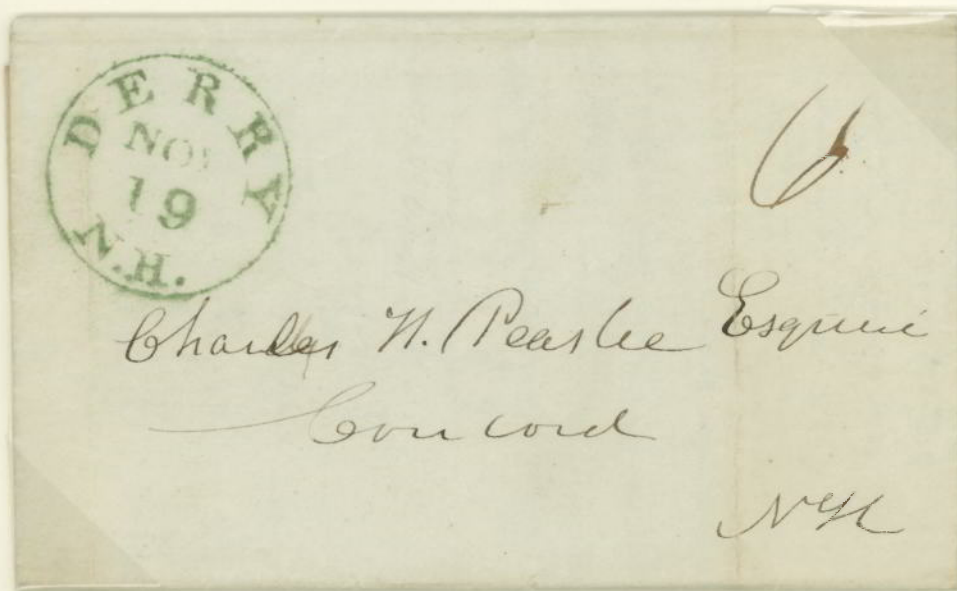 DERRY
NOV
19
N.H.
6
Charles H. Peaslee Esquire
Concord
NH